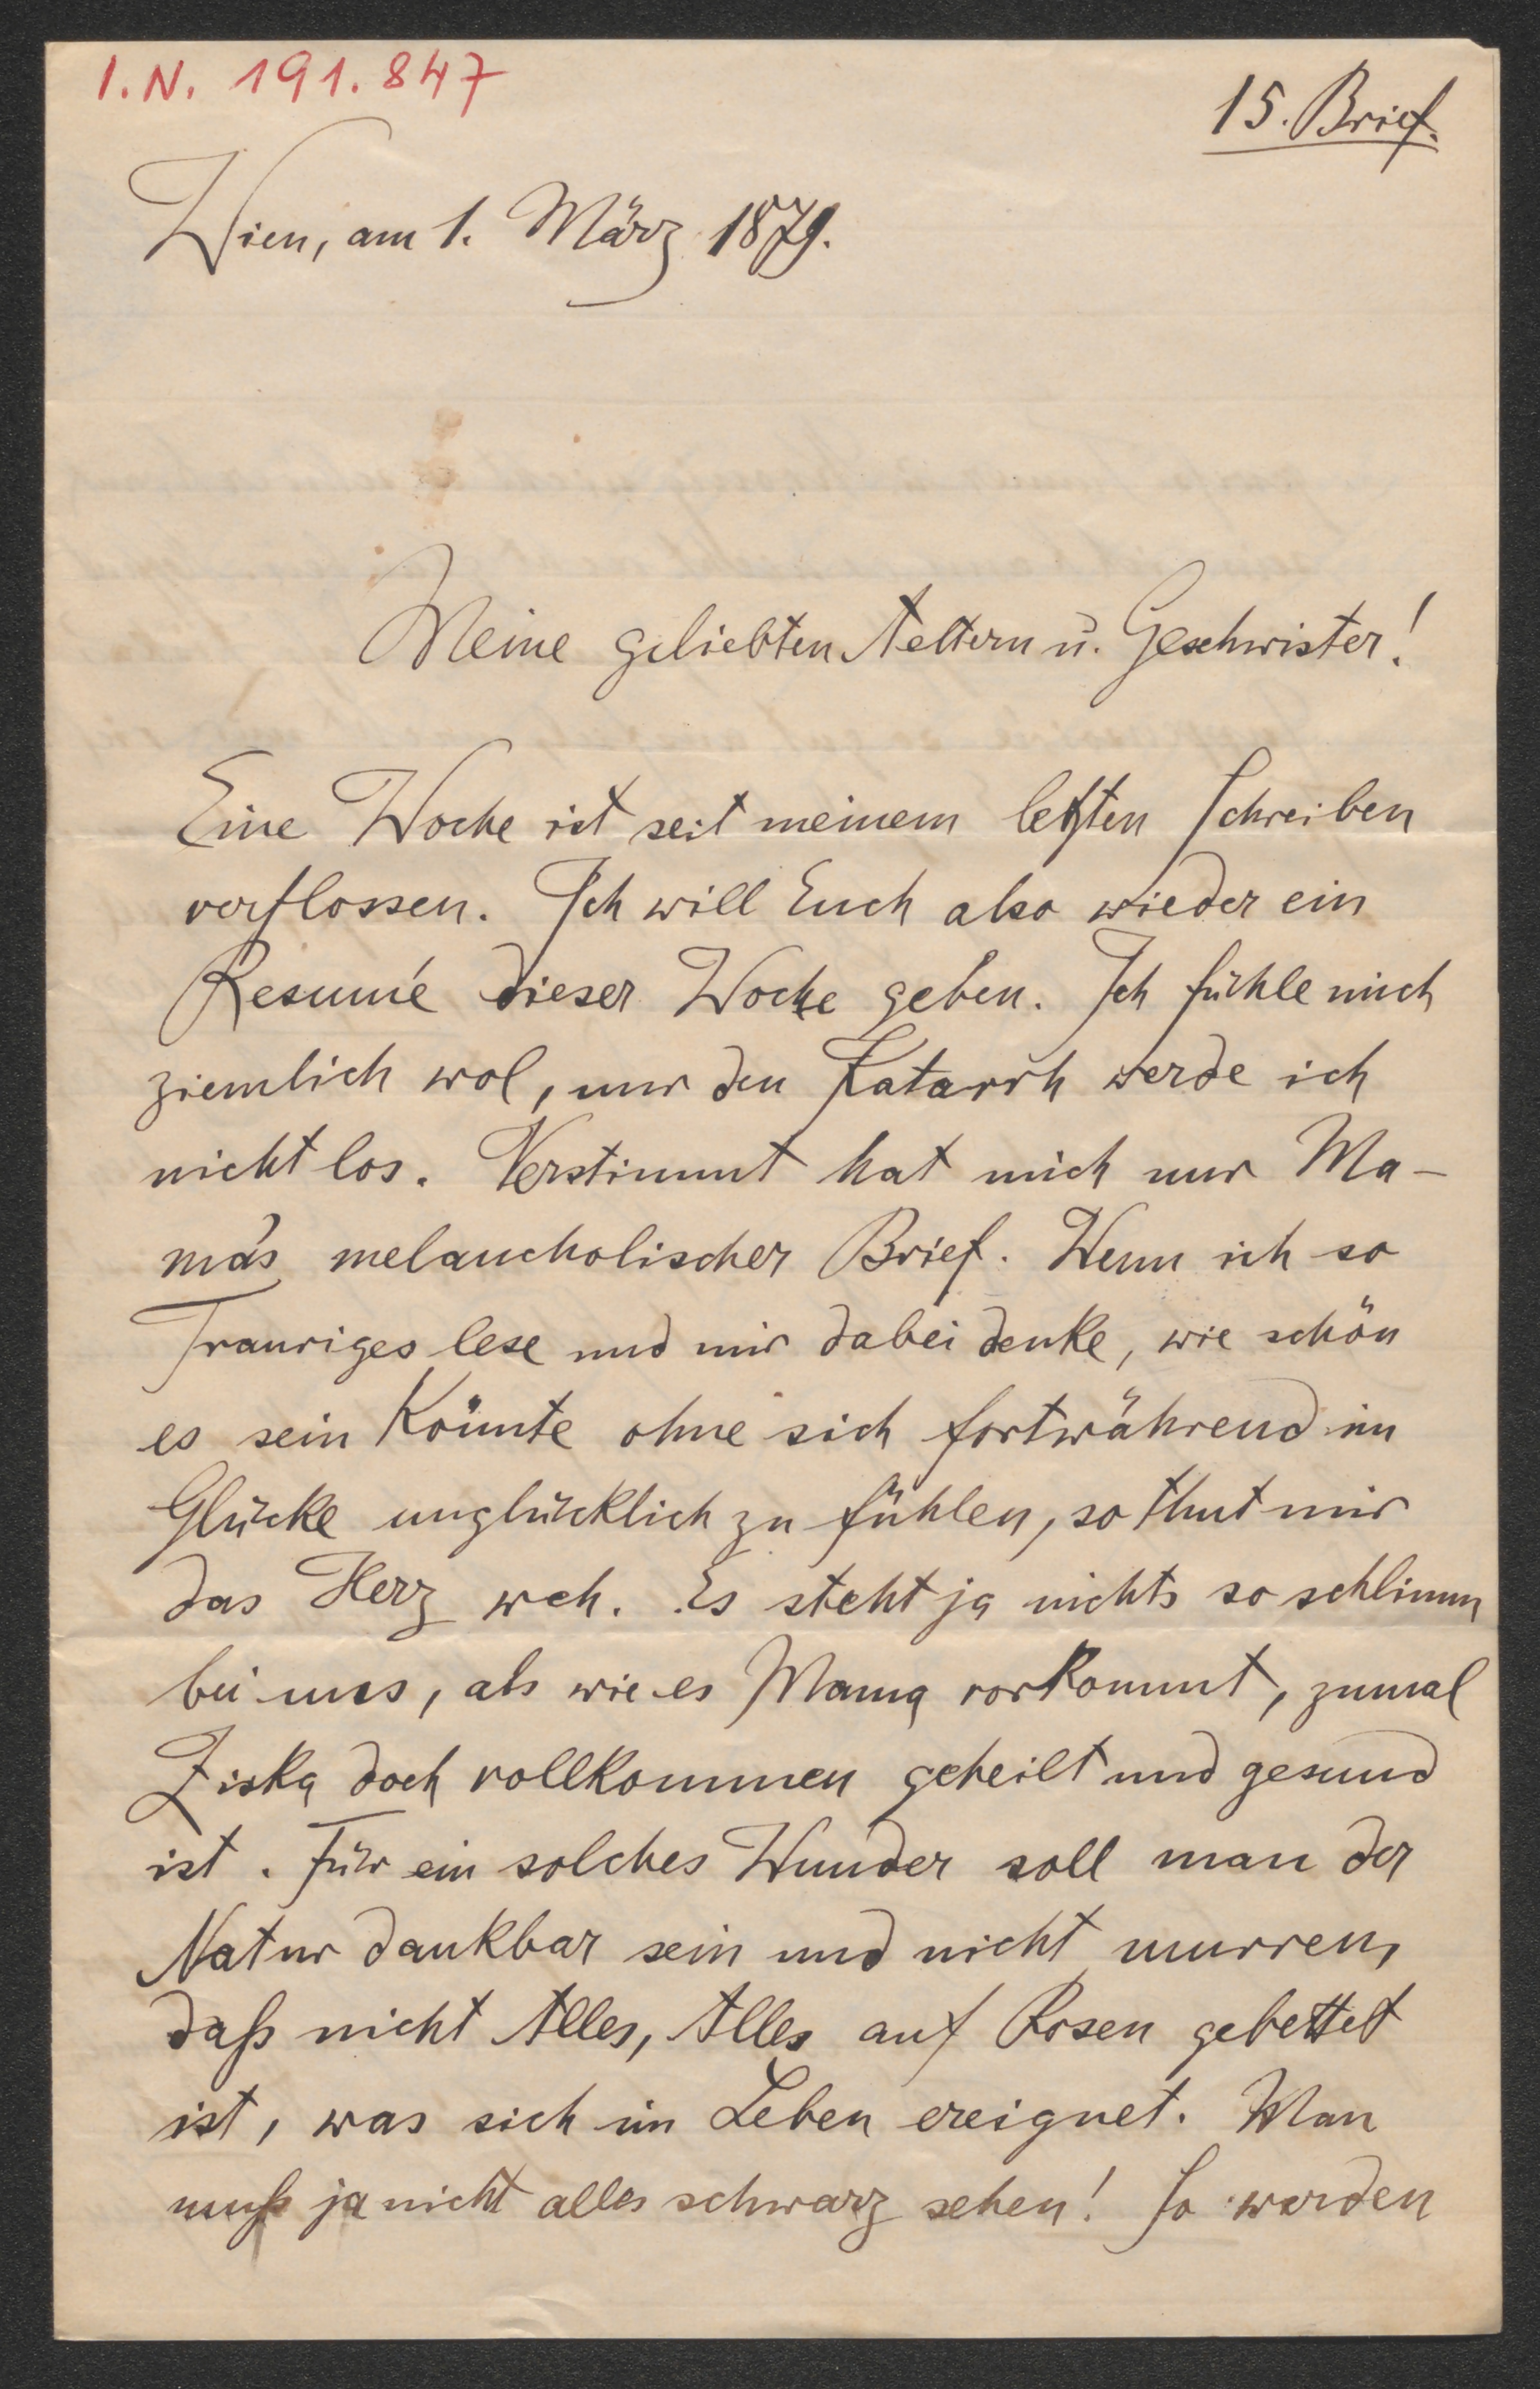 I.N. 191.847
15. Brief.
Wien, am 1. März 1879.
Meine geliebten Aeltern u. Geschwister!
Eine Woche ist seit meinem letzten Schreiben
verflossen. Ich will Euch also wieder ein
Resumé dieser Woche geben. Ich fühle mich
ziemlich wol, nur den Katarrh werde ich
nicht los. Verstimmt hat mich nur Ma-
ma's melancholischer Brief. Wenn ich so
Trauriges lese und mir dabei denke, wie schön
es sein könnte ohne sich fortwährend im
Glücke unglücklich zu fühlen, so thut mir
das Herz weh. Es steht ja nichts so schlimm
bei uns, als wie es Mama vorkommt, zumal
Ziska doch vollkommen geheilt und gesund
ist. Für ein solches Wunder soll man der
Natur dankbar sein und nicht murren,
daß nicht Alles, Alles auf Rosen gebettet
ist, was sich im Leben ereignet. Man
muß ja nicht alles schwarz sehen! So werden